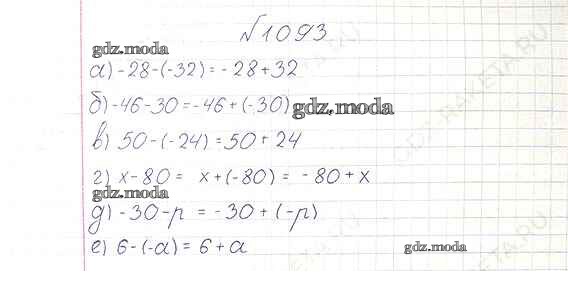 №1093
gdz.moda
а) -28-(-32) = -28+32
б) -46-30 = -46+(-30) gdz.moda
в) 50-(-24) = 50+24
г) x-80 = x+(-80) = -80+x
gdz.moda
д) -30-p = -30+(-p)
е) 6-(-a) = 6+a
gdz.moda
GDZ-RAKETA.RU